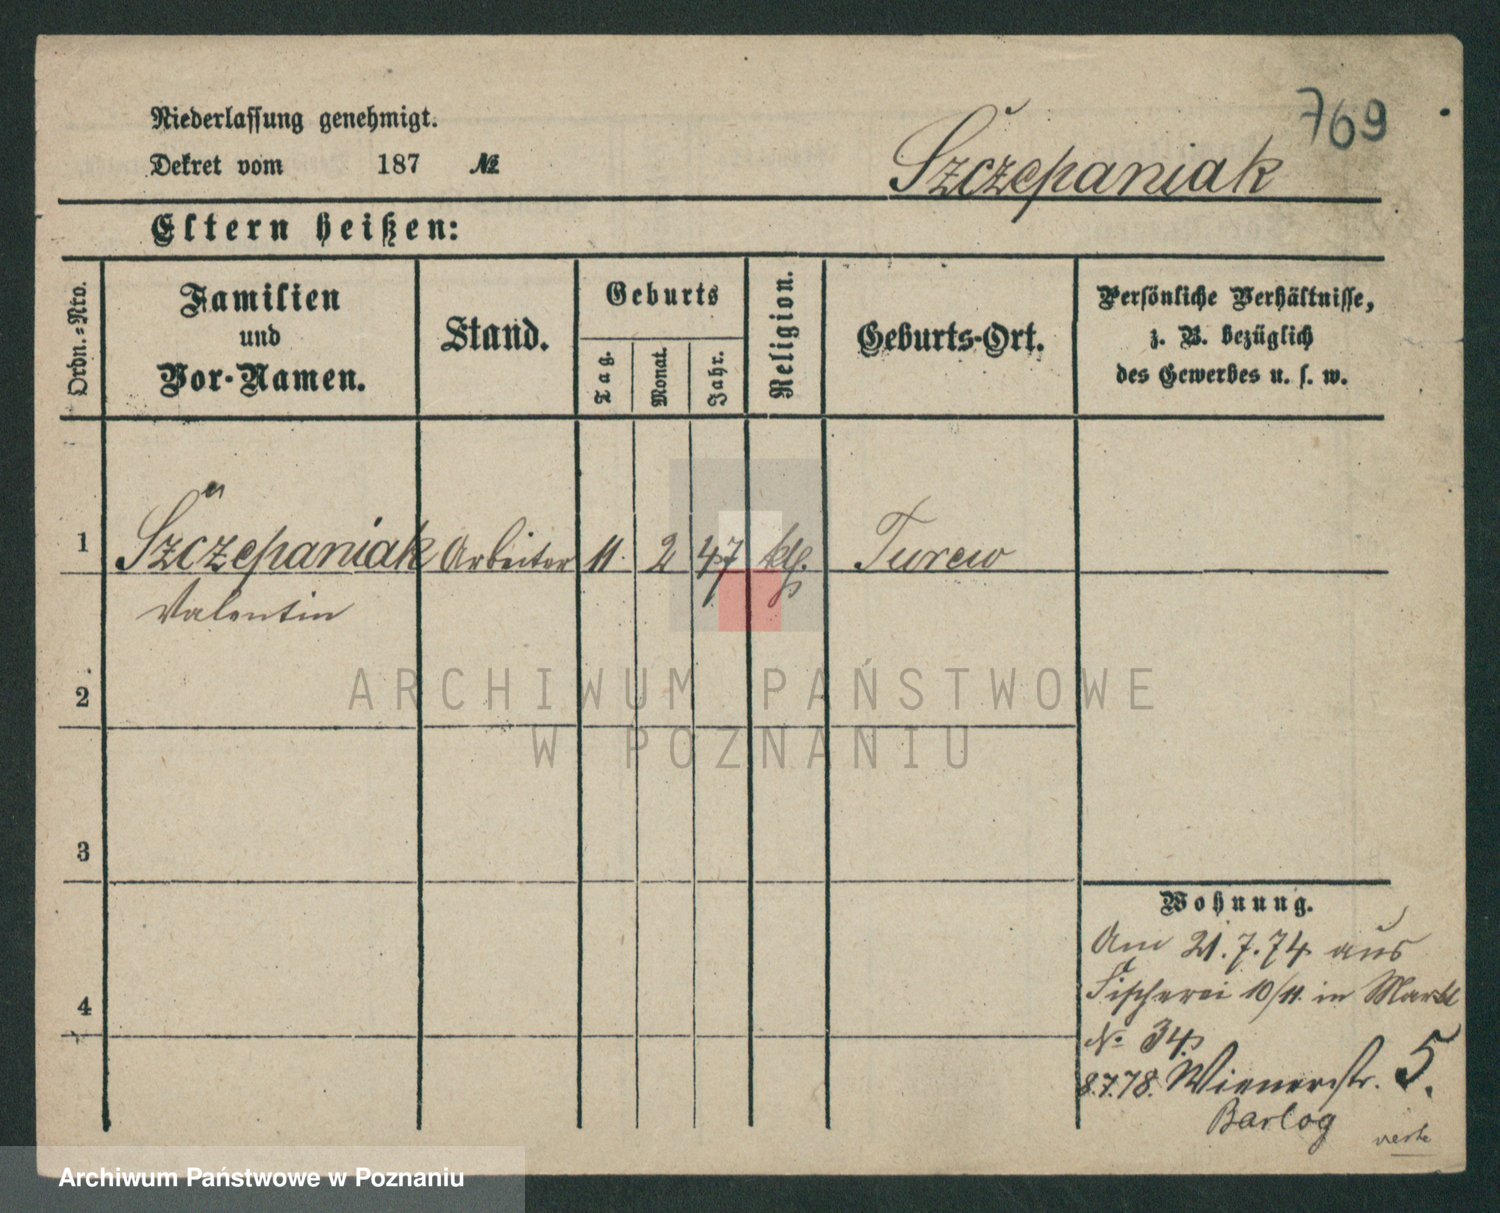 769
Niederlassung genehmigt.
Dekret vom 187 №
Szczepaniak
Eltern heißen:
Ordn.=Nro.
Familien
und
Vor-Namen.
Stand.
Geburts
Tag.
Monat.
Jahr.
Religion.
Geburts-Ort.
Persönliche Verhältnisse,
z. B. bezüglich
des Gewerbes u. s. w.
1 Szczepaniak Arbeiter 11. 2 47 ktlf. Turew
Valentin
ARCHIWUM PAŃSTWOWE
W POZNANIU
2
3
4
Wohnung.
Am 21.7.74 aus
Fischerei 10/11. in Markt
No 34.
8.7.78. Wienerstr. 5.
Barlog
Archiwum Państwowe w Poznaniu